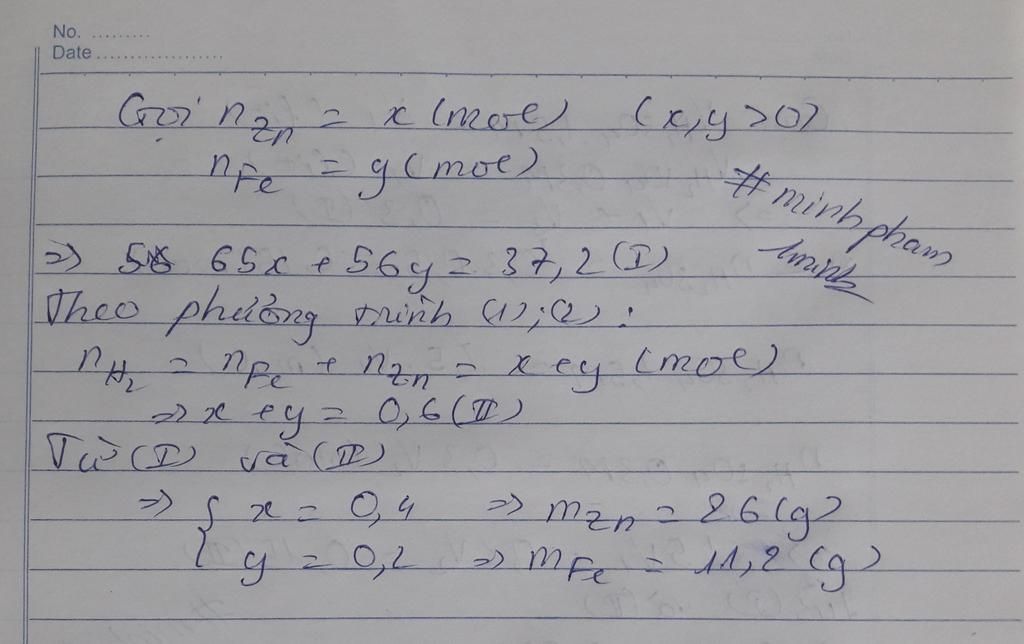 No. .........
Date ...................
Gọi n Zn = x (mol) (x, y > 0)
n Fe = y (mol)
#minhpham
1minh
=> 65x + 56y = 37,2 (I)
Theo phương trình (1); (2) :
n H2 = n Fe + n Zn = x + y (mol)
=> x + y = 0,6 (II)
Từ (I) và (II)
=> { x = 0,4 => m Zn = 26 (g)
y = 0,2 => m Fe = 11,2 (g)